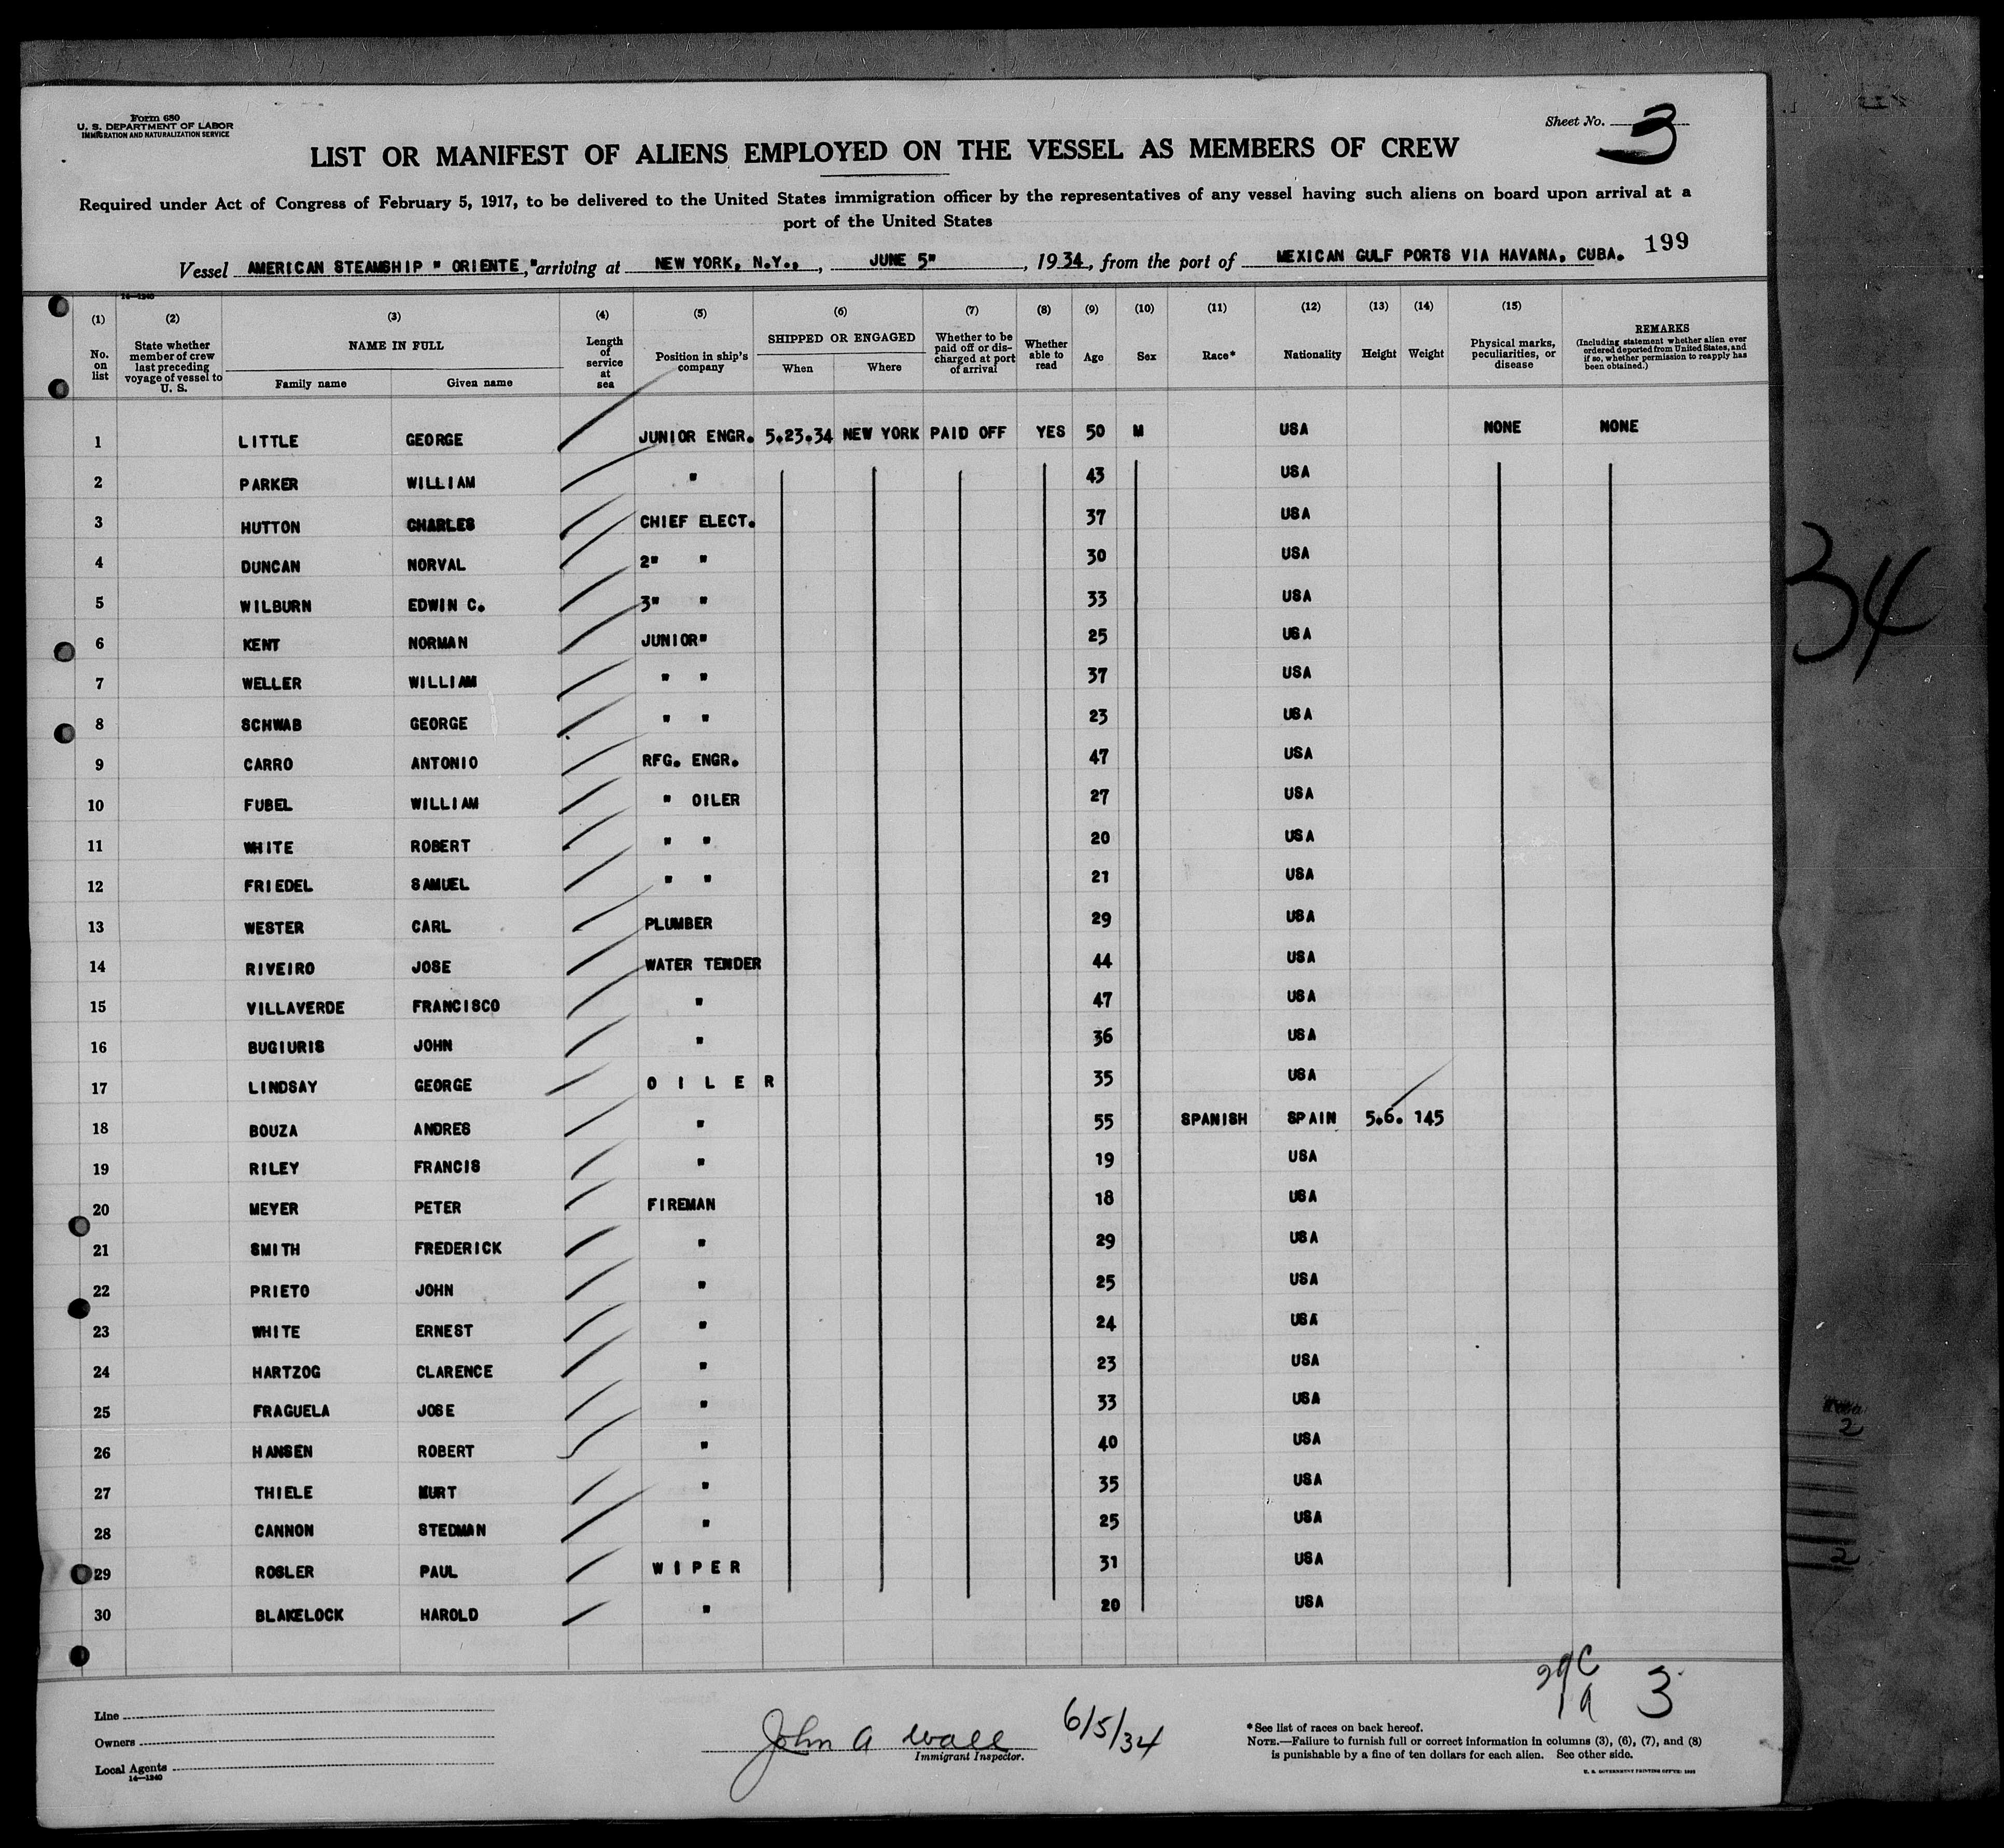 Form 680
U. S. DEPARTMENT OF LABOR
IMMIGRATION AND NATURALIZATION SERVICE
Sheet No. 3
LIST OR MANIFEST OF ALIENS EMPLOYED ON THE VESSEL AS MEMBERS OF CREW
Required under Act of Congress of February 5, 1917, to be delivered to the United States immigration officer by the representatives of any vessel having such aliens on board upon arrival at a
port of the United States
199
Vessel AMERICAN STEAMSHIP " ORIENTE," arriving at NEW YORK, N.Y., , JUNE 5" , 1934, from the port of MEXICAN GULF PORTS VIA HAVANA, CUBA.
14—1240
(1) No. on list (2) State whether member of crew last preceding voyage of vessel to U. S. (3) NAME IN FULL Family name Given name (4) Length of service at sea (5) Position in ship's company (6) SHIPPED OR ENGAGED When Where (7) Whether to be paid off or discharged at port of arrival (8) Whether able to read (9) Age (10) Sex (11) Race* (12) Nationality (13) Height (14) Weight (15) Physical marks, peculiarities, or disease REMARKS (Including statement whether alien ever ordered deported from United States, and if so, whether permission to reapply has been obtained.)
1 LITTLE GEORGE JUNIOR ENGR. 5.23.34 NEW YORK PAID OFF YES 50 M USA NONE NONE
2 PARKER WILLIAM " 43 USA
3 HUTTON CHARLES CHIEF ELECT. 37 USA
4 DUNCAN NORVAL 2" " 30 USA
5 WILBURN EDWIN C. 3" " 33 USA
6 KENT NORMAN JUNIOR" 25 USA
7 WELLER WILLIAM " " 37 USA
8 SCHWAB GEORGE " " 23 USA
9 CARRO ANTONIO RFG. ENGR. 47 USA
10 FUBEL WILLIAM " OILER 27 USA
11 WHITE ROBERT " " 20 USA
12 FRIEDEL SAMUEL " " 21 USA
13 WESTER CARL PLUMBER 29 USA
14 RIVEIRO JOSE WATER TENDER 44 USA
15 VILLAVERDE FRANCISCO " 47 USA
16 BUGIURIS JOHN " 36 USA
17 LINDSAY GEORGE O I L E R 35 USA
18 BOUZA ANDRES " 55 SPANISH SPAIN 5.6. 145
19 RILEY FRANCIS " 19 USA
20 MEYER PETER FIREMAN 18 USA
21 SMITH FREDERICK " 29 USA
22 PRIETO JOHN " 25 USA
23 WHITE ERNEST " 24 USA
24 HARTZOG CLARENCE " 23 USA
25 FRAGUELA JOSE " 33 USA
26 HANSEN ROBERT " 40 USA
27 THIELE " 35 USA
28 CANNON STEDMAN " 25 USA
29 ROSLER PAUL W I P E R 31 USA
30 BLAKELOCK HAROLD " 20 USA
34
2
2
29 C
1 a
3
Line
Owners
Local Agents
14—1240
John A Wall 6/5/34
Immigrant Inspector.
*See list of races on back hereof.
NOTE.—Failure to furnish full or correct information in columns (3), (6), (7), and (8)
is punishable by a fine of ten dollars for each alien. See other side.